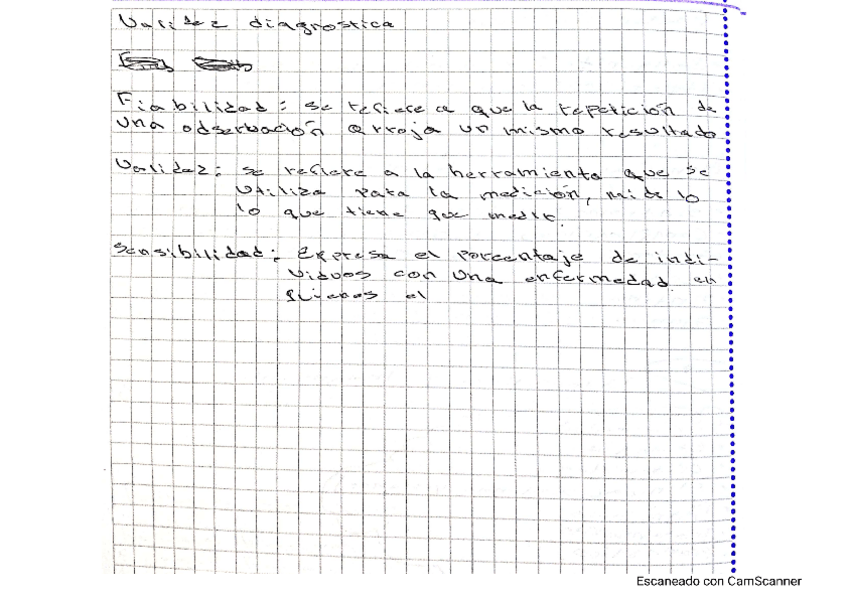 Validez diagnostica
Fiabilidad: se refiere a que la repetición de
una observación arroja un mismo resultado
Validez: se refiere a la herramienta que se
utiliza para la medición, mide lo
lo que tiene que medir.
Sensibilidad: Expresa el porcentaje de indi-
viduos con una enfermedad en
quienes el
Escaneado con CamScanner